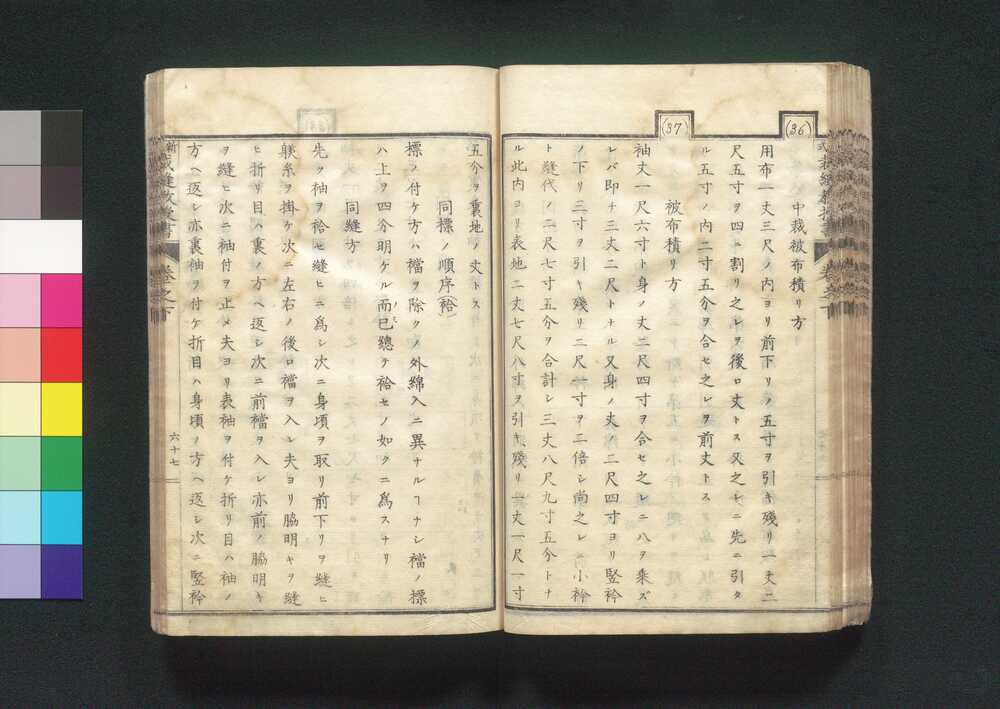 (36)
中裁被布積リ方
用布一丈三尺ノ内ヨリ前下リノ五寸ヲ引キ殘リ一丈二
尺五寸ヲ四ニ割リ之レヲ後ロ丈トス又之レニ先ニ引タ
ル五寸ノ内二寸五分ヲ合セ之レヲ前丈トス
(37)
被布積リ方
袖丈一尺六寸ト身ノ丈二尺四寸ヲ合セ之レニ八ヲ乘ズ
レバ即チ三丈二尺トナル又身ノ丈ノ二尺四寸ヨリ竪衿
ノ下リ三寸ヲ引キ殘リ二尺一寸ヲ二倍シ尚之レニ小衿
ト縫代ノ二尺七寸五分ヲ合計シ三丈八尺九寸五分トナ
ル此内ヨリ表地二丈七尺八寸ヲ引キ殘リ一丈一尺一寸
五分ヲ裏地ノ丈トス
同標ノ順序(袷)
標ノ付ケ方ハ襠ヲ除クノ外綿入ニ異ナルヿナシ襠ノ標
ハ上ヲ四分明ケル而已總テ袷セノ如クニ爲スナリ
同縫方
先ツ袖ヲ袷セ縫ヒニ爲シ次ニ身頃ヲ取リ前下リヲ縫ヒ
躾糸ヲ掛ケ次ニ左右ノ後ロ襠ヲ入レ夫ヨリ脇明キヲ縫
ヒ折リ目ハ裏ノ方ヘ返シ次ニ前襠ヲ入レ亦前ノ脇明キ
ヲ縫ヒ次ニ袖付ヲ止メ夫ヨリ表袖ヲ付ケ折リ目ハ袖ノ
方ヘ返シ亦裏袖ヲ付ケ折目ハ身頃ノ方ヘ返シ次ニ竪衿
卷之下
六十七